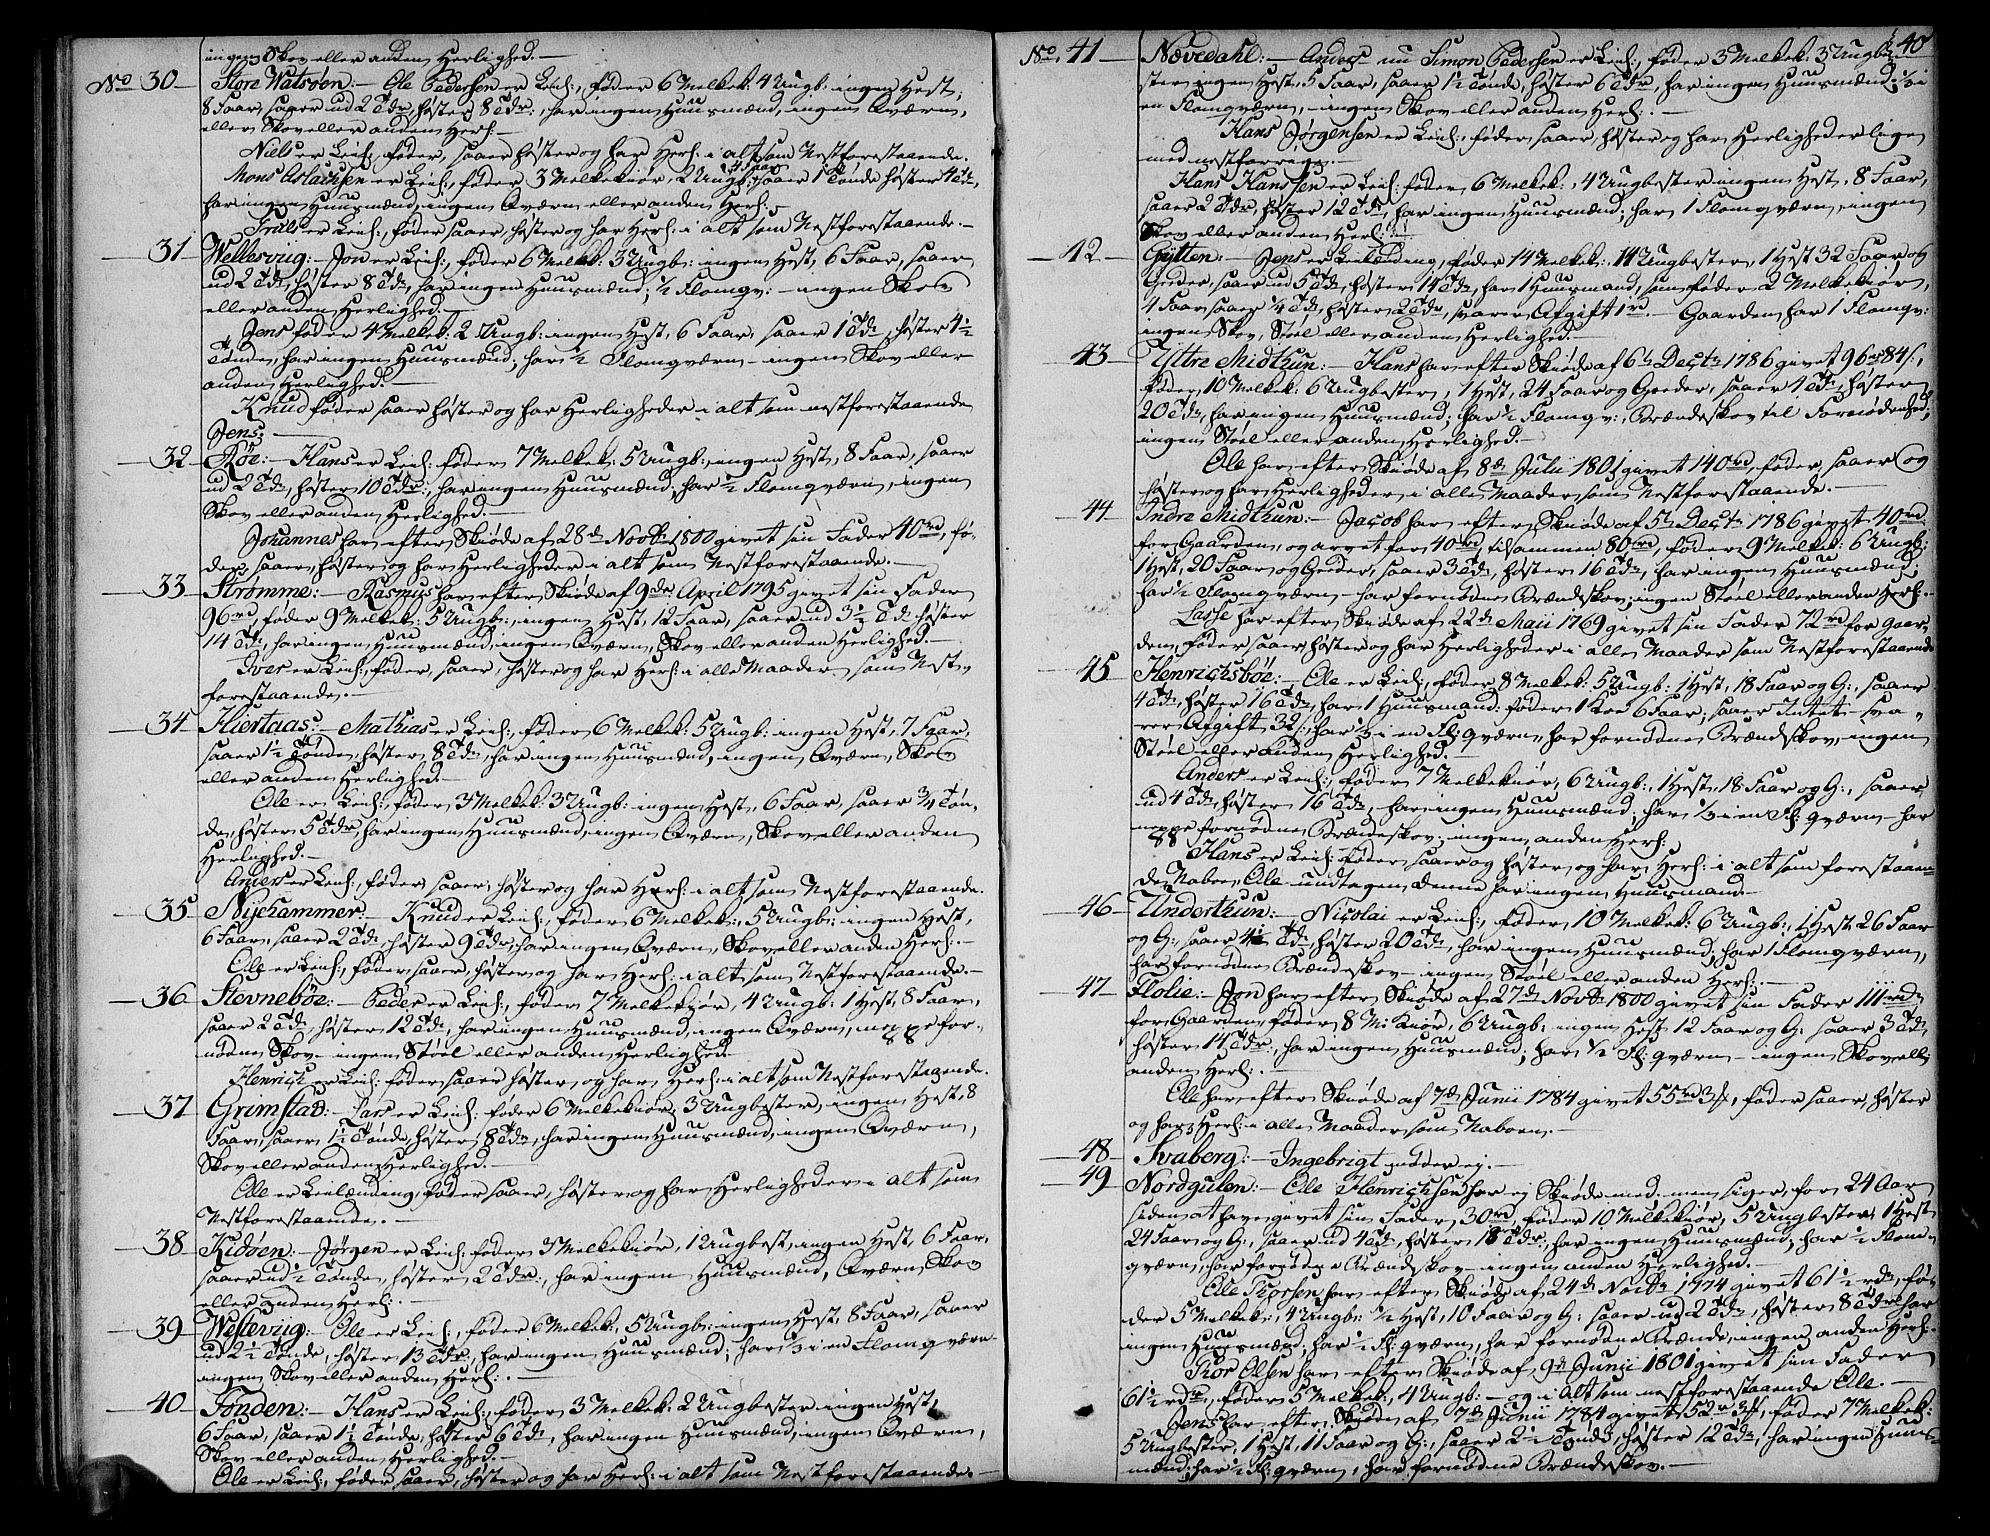 ingen Skov eller anden Herlighed.—
No 30 — Store Watsöen:— Ole Pedersen er Leil:, föder 6 Melkek: 4 Ungb: ingen Hest,
8 Faar, saaer ud 2 Tdr, höster 8 Tdr:, har ingen Huusmænd, ingen Qværn,
eller Skov eller anden Herl:—
Niels er Leil:, föder, saaer höster og har Herl: i alt som Nestforestaaende.
Mons Aslachsen er Leil:, föder 3 Melkekiör, 2 Ungb: 4 Faar, saaer 1 Tönde höster 4 Tdr,
har ingen Huusmænd, ingen Qværn eller anden Herl:
Truls er Leil:, föder saaer, höster og har Herl: i alt som Nestforestaaende.—
31 Wellevüg:— Jon er Leil:, föder 6 Melkek: 3 Ungb: ingen Hest, 6 Faar, saaer
ud 2 Tdr, höster 8 Tdr, har ingen Huusmænd; 1/2 Flomqv:— ingen Skov
eller anden Herlighed.—
Jens föder 4 Melkek: 2 Ungb: ingen Hest, 6 Faar, saaer 1 Tdr, höster 4 1/2
Tönder, har ingen Huusmænd; har 1/2 Flomqværn— ingen Skov eller
anden Herlighed.—
Knud föder saaer höster og har Herligheder i alt som nestforestaaende
Jens.—
32 Röe:— Hans er Leil: föder 7 Melkek: 5 Ungb:, ingen Hest, 8 Faar, saaer
ud 2 Tdr, höster 10 Tdr:, har ingen Huusmænd, har 1/2 Flomqværn, ingen
Skov eller anden Herlighed.—
Johannes har efter Skiöde af 28de Novbr 1800 givet sin Fader 40 rd, fö-
der, saaer, höster og har Herligheder i alt som Nestforestaaende.—
33 Strömme:— Rasmus har efter Skiöde af 9de April 1795 givet sin Fader
96 rd, föder 9 Melkek: 5 Ungb:, ingen Hest, 12 Faar, saaer ud 3 1/2 Td: höster
14 Td:, har ingen Huusmænd, ingen Qværn, Skov eller anden Herlighed.—
Iver er Leil:, föder, saaer, höster og har Herl: i alle Maader som Nest-
forestaaende.—
34 Hiertaas:— Mathias er Leil:, föder 6 Melkek: 5 Ungb: ingen Hest, 7 Faar,
saaer 1 1/2 Tönde, höster 8 Tdr, har ingen Huusmænd, ingen Qværn, Skov
eller anden Herlighed.—
Ole er Leil:, föder 3 Melkek: 3 Ungb: ingen Hest, 6 Faar, saaer 3/4 Tön-
de, höster 5 Tdr, har ingen Huusmænd, ingen Qværn, Skov eller anden
Herlighed.—
Anders er Leil:, föder saaer, höster og har Herl: i alt som Nestforestaaende.
35 Nyehammer:— Knud er Leil:, föder 6 Melkek:, 5 Ungb: ingen Hest,
6 Faar, saaer 2 Tdr, höster 9 Tdr, har ingen Qværn, Skov eller anden Herl:—
Ole er Leil:, föder saaer, höster, og har Herl: i alt som Nestforestaaende.—
36 Stevneböe:— Peder er Leil:, föder 7 Melkekiör, 4 Ungb: 1 Hest, 8 Faar,
saaer 2 Tdr, höster 12 Tdr, har ingen Huusmænd, ingen Qværn, neppe for-
nöden Skov— ingen Stöel eller anden Herlighed
Henrich er Leil: föder saaer höster, og har Herl: i alt som Nestforestaaende.
37 Grimstad:— Lars er Leil: föder 6 Melkekiör, 3 Ungbester, ingen Hest, 8
Faar, saaer 1 1/2 Tönde, höster 8 Tdr, har ingen Huusmænd, ingen Qværn,
Skov eller anden Herlighed.—
Ole er Leilænding, föder saaer, höster og har Herligheder i alt som
Nestforestaaende.—
38 Kidöen:— Jörgen er Leil: föder 3 Melkekiör, 1 Ungbest, ingen Hest, 6 Faar,
saaer ud 1/2 Tönde, höster 2 Tdr:, har ingen Huusmænd, Qværn, Skov
eller anden Herl:.—
39 Wesseviig:— Ole er Leil:, föder 6 Melkek:, 5 Ungb: ingen Hest, 8 Faar, saaer
ud 2 1/2 Tönde, höster 13 Tdr, har ingen Huusmænd; har 1/3 i en Flomqværn—
ingen Skov eller anden Herl:.—
40 Fonden:— Hans er Leil:, föder 3 Melkek: 2 Ungbester ingen Hest,
6 Faar, saaer 1 1/2 Tönde, höster 6 Tdr, har ingen Huusmænd, ingen Qværn,
Skov eller anden Herlighed.—
Ole er Leil:, föder saaer, höster og har Herl: i alt som Nestforestaaende.—
40
No. 41 — Nævedahl:— Anders nu Simon Pedersen er Leil:, föder 3 Melkek: 3 Ungbe-
ster, ingen Hest, 5 Faar, saaer 1 1/2 Tönde, höster 6 Tdr, har ingen Huusmænd; 1/3 i
en Flomqværn,— ingen Skov eller anden Herl:.—
Hans Jörgensen er Leil:, föder, saaer, höster og har Herlighed er ligen
med nestforrige.—
Hans Hanssen er Leil: föder 6 Melkek:, 4 Ungbester ingen Hest, 8 Faar,
saaer 2 Tdr, höster 12 Tdr, har ingen Huusmænd; har 1 Flomqværn, ingen
Skov eller anden Herl:.
42 — Gylten:— Jens er Leilænding, föder 14 Melkek:, 14 Ungbester, 1 Hest 32 Faar og
Geder, saaer ud 5 Tdr, höster 14 Tdr, har 1 Huusmand, som föder 2 Melkekiör,
4 Faar, saaer 1/4 Tdr, höster 2 Tdr, svarer Afgift 1 rd.— Gaarden har 1 Flomqv:
ingen Skov, Stöel eller anden Herlighed.—
43 Yttre Midthun:— Hans har efter Skiöde af 6te Decbr 1786 givet 96 rd 84 s,
föder 10 Melkek: 6 Ungbester, 1 Hest, 24 Faar og Geeder, saaer 4 Tdr, höster
20 Tdr, har ingen Huusmænd; har 1/2 Flomqv: Brændeskov til Fornödenhed,
ingen Stöel eller anden Herlighed.—
Ole har efter Skiöde af 8de Julii 1801 givet 140 rd, föder, saaer og
höster og har Herligheder i alle Maader som Nestforestaaende.—
44 Indre Midthun:— Jacob har efter Skiöde af 5te Decbr 1786 givet 40 rd
for Gaarden, og arvet for 40 rd, tilsammen 80 rd, föder 9 Melkek: 6 Ungb:
1 Hest, 20 Faar og Geeder, saaer 3 Tdr, höster 16 Tdr, har ingen Huusmænd;
har 1/2 Flomqværn— har fornöden Brændeskov; ingen Stöel eller anden Herl:—
Lasse har efter Skiöde af 22de Maii 1769 givet sin Fader 72 rd for Gaar-
den, föder saaer, höster og har Herligheder i alle Maader som Nestforestaaende
45 Henrichsböe:— Ole er Leil:, föder 8 Melkek: 5 Ungb: 1 Hest, 18 Faar og G:, saaer
4 Tdr, höster 16 Tdr, har 1 Huusmand: föder 1 Koe 6 Faar, saaer Intet— sva-
rer Afgift 32 s; har 1/3 i en Fl: qværn, har fornöden Brændskov, ingen
Stöel eller anden Herlighed.
Anders er Leil:, föder 7 Melkekiör, 6 Ungb:, 1 Hest, 18 Faar og G:, saaer
ud 4 Tdr, höster 16 Tdr, har ingen Huusmænd; har 1/3 i en Fl: qværn— har
neppe fornöden Brændeskov; ingen anden Herl:.
Hans er Leil: föder, saaer og höster, og har Herl: i alt som forestaaen-
de Naboe Ole— undtagen denne har ingen Huusmænd.—
46 Underthun:— Nicolai er Leil:, föder 10 Melkek: 6 Ungb:, 1 Hest 26 Faar
og G:, saaer 4 1/2 Tdr, höster 20 Tdr, har ingen Huusmænd; har 1 Flomqværn,
har fornöden Brændeskov— ingen Stöel eller anden Herl:.—
47 Flolie:— Jon har efter Skiöde af 27de Novbr 1800 givet sin Fader 111 rd
for Gaarden, föder 8 M: Kiör, 6 Ungb: ingen Hest 12 Faar og G: saaer 3 Tdr,
höster 14 Tdr:, har ingen Huusmænd; har 1/2 Fl: qværn— ingen Skov ell:
anden Herl:.—
Ole har efter Skiöde af 7de Junii 1784 givet 55 rd 3 s, föder saaer, höster
og har Herl: i alle Maader som Naboen.—
48 Svaberg:— Ingebrigt möder ej.—
49 Nordgulen:— Ole Henrichsen har ej Skiöde med— men siger, for 24 Aar
siden at have givet sin Fader 30 rd, föder 10 Melkekiör, 5 Ungbester, 1 Hest
24 Faar og G:, saaer ud 4 Td:, höster 18 Tdr:, har ingen Huusmænd; har 1/2 Flom-
qværn, har fornöden Brændskov— ingen anden Herlighed.—
Ole Thorsen har efter Skiöde af 24de Novbr 1774 givet 61 1/2 rdr, fö-
der 5 Melkek:, 4 Ungb: 1/2 Hest, 10 Faar og G: saaer ud 2 Tdr, höster 8 Tdr har
ingen Huusmænd; har 1/2 Fl: qværn, har fornöden Brænde, ingen anden Herl:
Thor Olsen har efter Skiöde af 9de Junii 1801 givet sin Fader
61 1/2 rdr, föder 5 Melkek:, 4 Ungb:— og i alt som nestforestaaende Ole.—
Jens har efter Skiöde af 7de Junii 1784 givet 52 rd 3 s, föder 7 Melkek:
5 Ungbester, 1 Hest, 11 Faar og G:, saaer 2 1/2 Tönde, höster 12 Tdr, har ingen Huus-
mænd; har 1/2 Fl: qværn, har fornöden Brændeskov.—